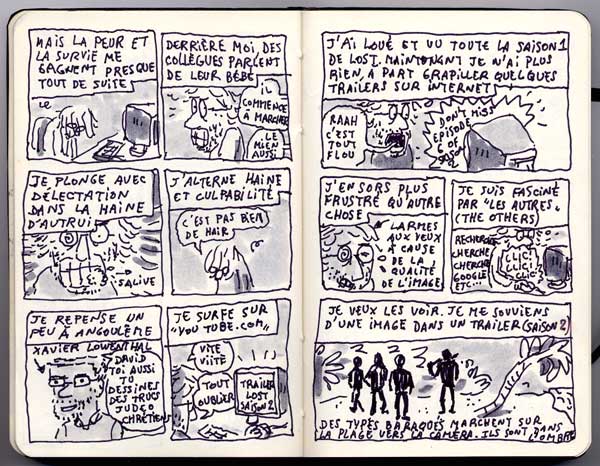 MAIS LA PEUR ET
LA SURVIE ME
GAGNENT PRESQUE
TOUT DE SUITE
DERRIÈRE MOI, DES
COLLÈGUES PARLENT
DE LEUR BÉBÉ
IL
COMMENCE
À MARCHER
LE
MIEN
AUSSI
JE PLONGE AVEC
DÉLECTATION
DANS LA HAINE
D'AUTRUI
SALIVE
J'ALTERNE HAINE
ET CULPABILITÉ
C'EST PAS BIEN
DE HAIR
JE REPENSE UN
PEU À ANGOULÊME
XAVIER LOWENTHAL
DAVID
TOI AUSSI
TU
DESSINES
DES TRUCS
JUDEO
CHRÉTIENS
JE SURFE SUR
"YOU TUBE.COM"
VITE
VIITE
TOUT
OUBLIER
TRAILER
LOST
SAISON 2
J'AI LOUÉ ET VU TOUTE LA SAISON 1
DE LOST. MAINTENANT JE N'AI PLUS
RIEN, A PART GRAPILLER QUELQUES
TRAILERS SUR INTERNET
RAAH
C'EST
TOUT
FLOU
DON'T MISS
EPISODE
6 OF
SEASON
2
J'EN SORS PLUS
FRUSTRÉ QU'AUTRE
CHOSE
LARMES
AUX YEUX
À CAUSE
DE LA
QUALITÉ
DE L'IMAGE
JE SUIS FASCINÉ
PAR "LES AUTRES"
(THE OTHERS)
RECHERCHE
CHERCHE
CHERCHE
GOOGLE
ETC...
CLIC!
CLIC!
CLIC!
JE VEUX LES VOIR. JE ME SOUVIENS
D'UNE IMAGE DANS UN TRAILER (SAISON 2)
DES TYPES BARAQUÉS MARCHENT SUR
LA PLAGE VERS LA CAMERA. ILS SONT DANS
L'OMBRE